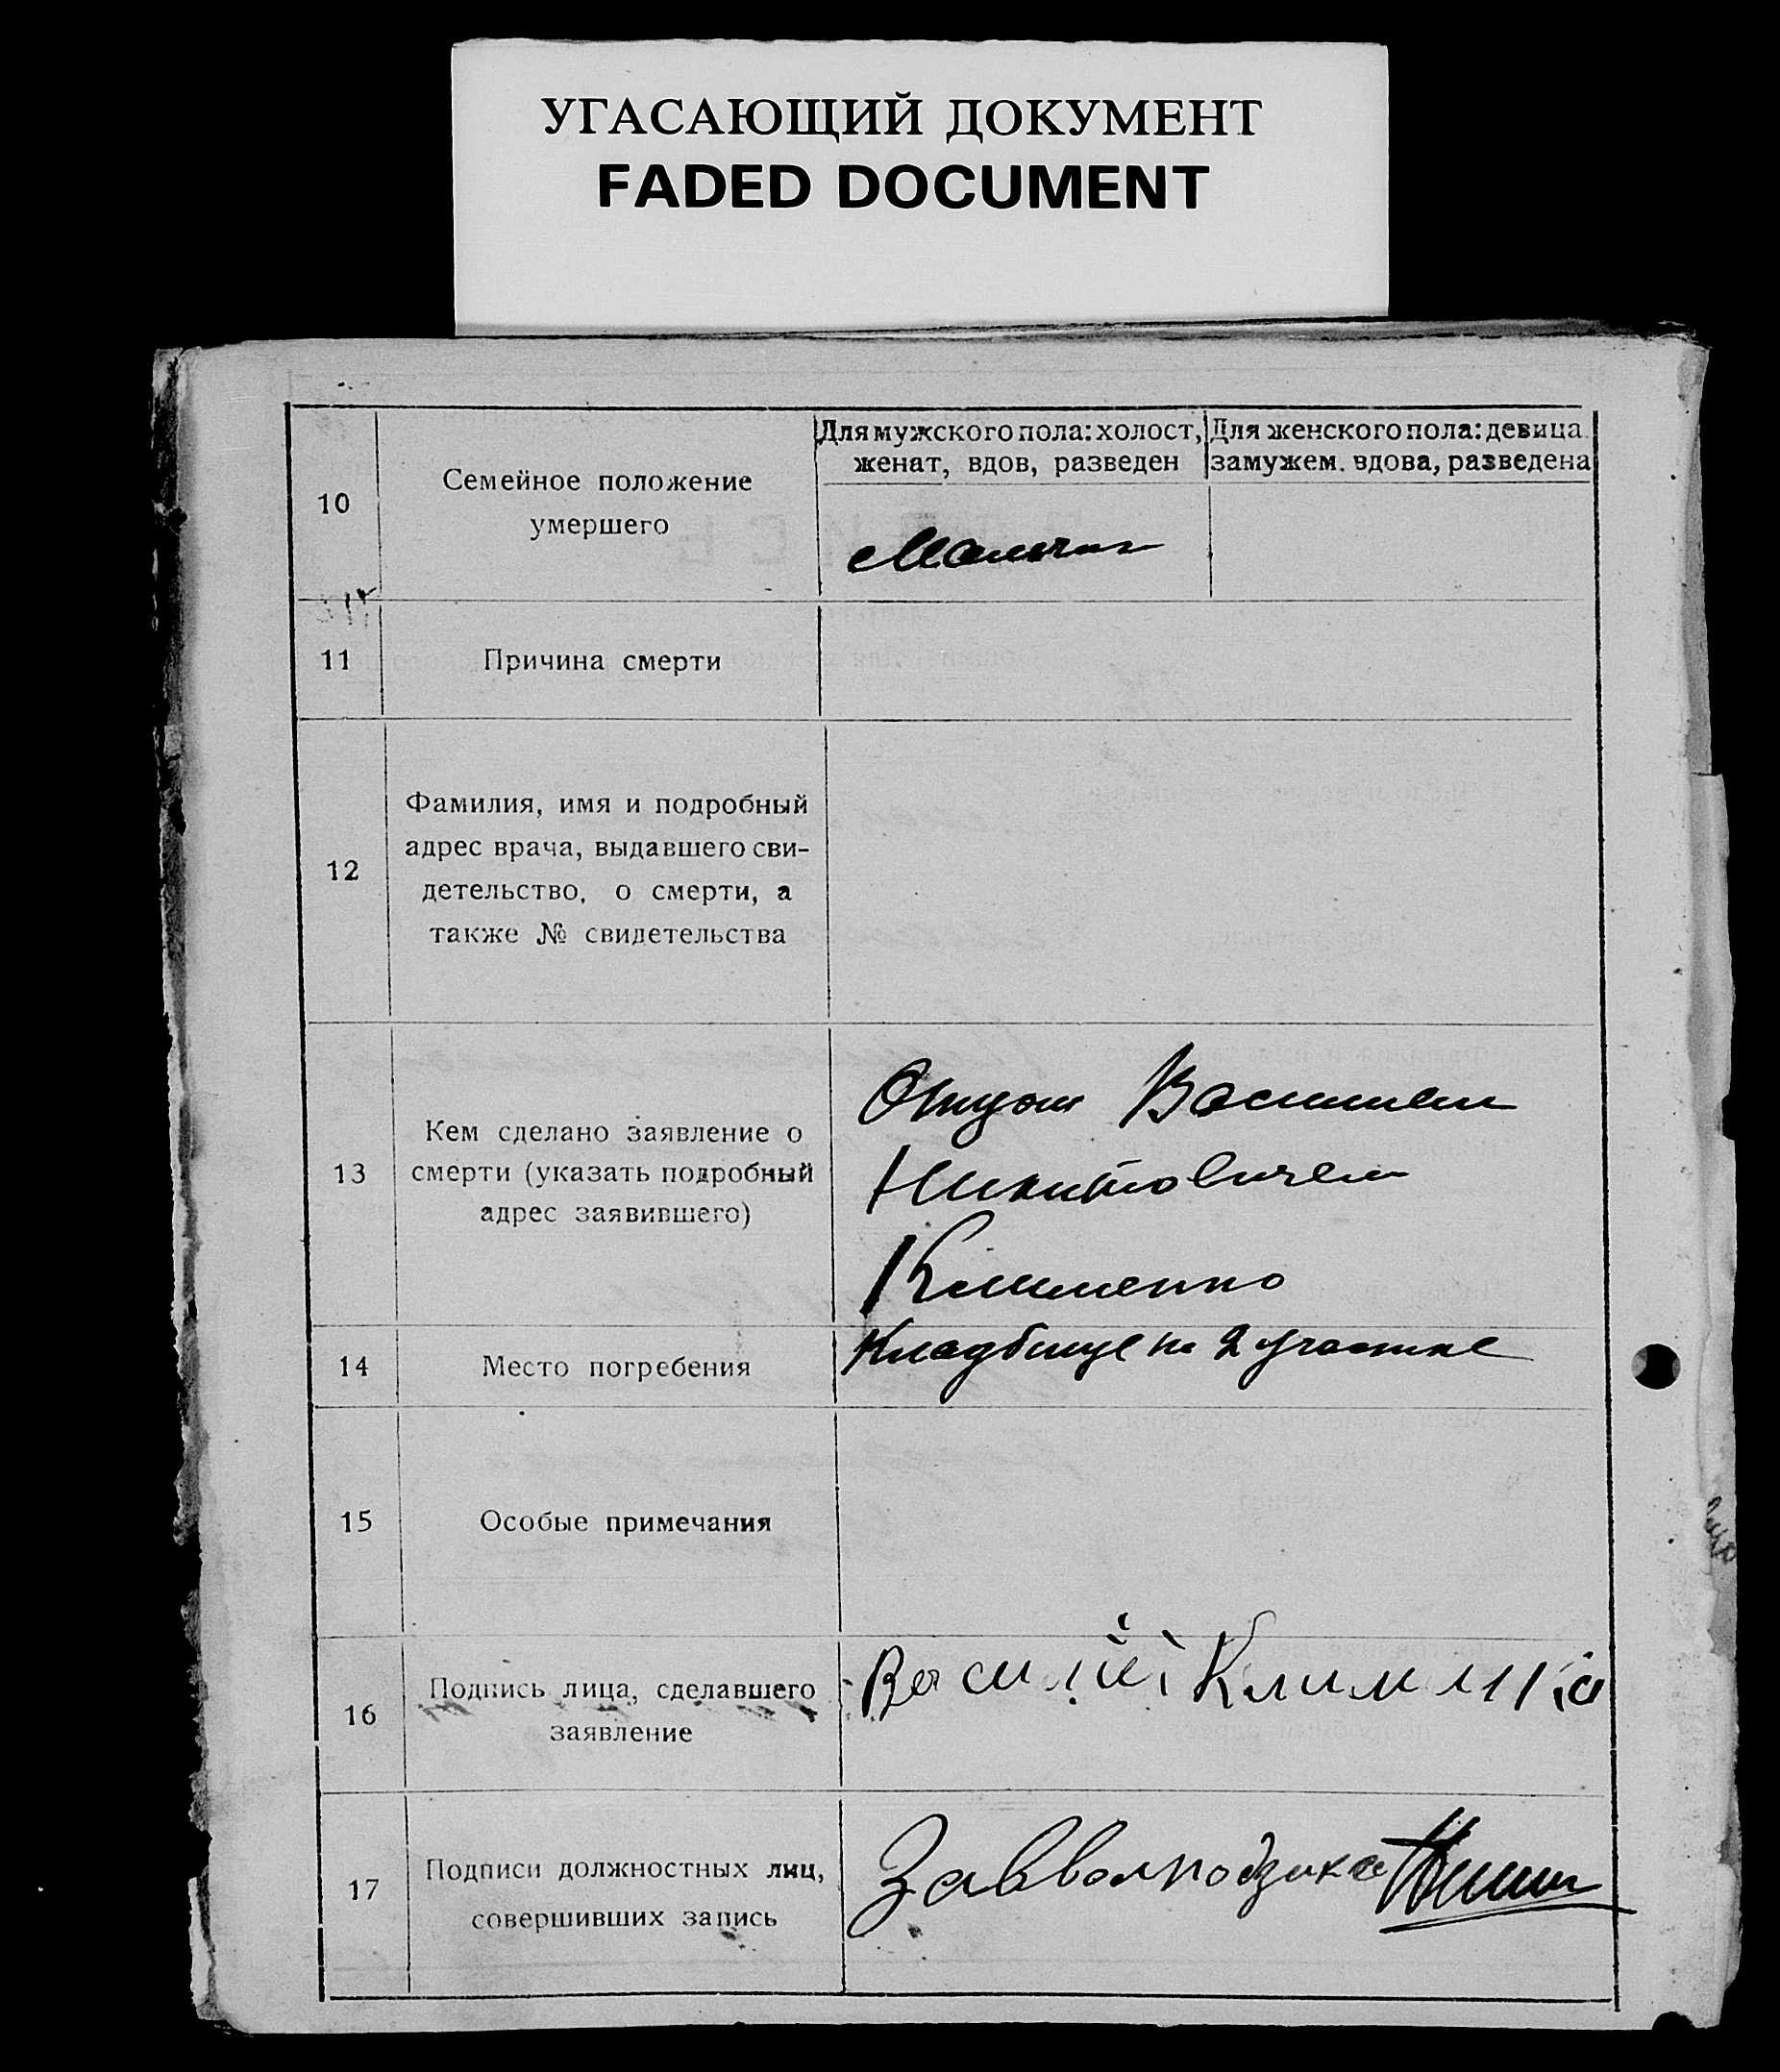 УГАСАЮЩИЙ ДОКУМЕНТ
FADED DOCUMENT
10
Семейное положение
умершего
Для мужского пола: холост,
женат, вдов, разведен
Для женского пола: девица
замужем. вдова, разведена
Мальчик
11
Причина смерти
12
Фамилия, имя и подробный
адрес врача, выдавшего сви-
детельство, о смерти, а
также № свидетельства
13
Кем сделано заявление о
смерти (указать подробный
адрес заявившего)
Отцом Василием
Никитовичем
Клименко
14
Место погребения
Кладбище на 2 участке
15
Особые примечания
16
Подпись лица, сделавшего
заявление
Василий Климинко
17
Подписи должностных лиц,
совершивших запись